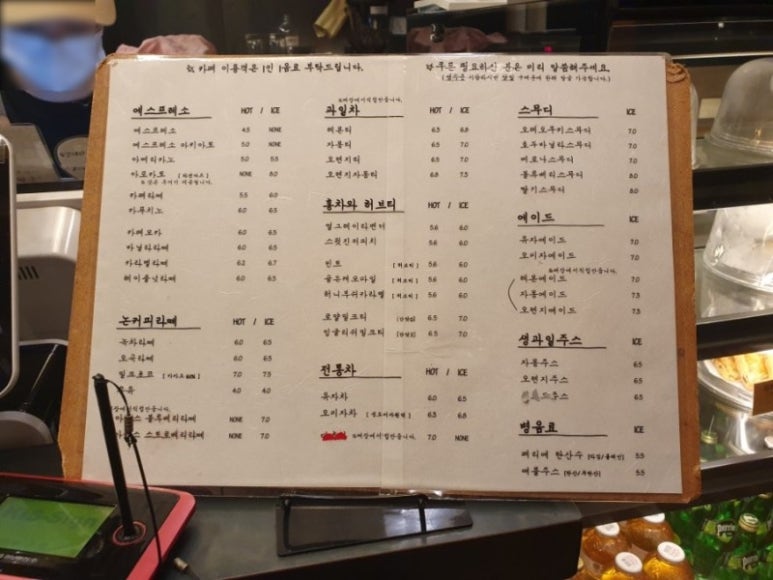 카페 이용객은 1인 1음료 부탁드립니다.
쿠폰 필요하신 분은 미리 말씀해주세요.
에스프레소 HOT / ICE
에스프레소 4.5 NONE
에스프레소 마키아토 5.0 NONE
아메리카노 5.0 5.5
아포가토 NONE 8.0
카페라떼 5.5 6.0
카푸치노 6.0 6.5
카페모카 6.0 6.5
바닐라라떼 6.0 6.5
카라멜라떼 6.2 6.7
헤이즐넛라떼 6.0 6.5
논커피라떼 HOT / ICE
녹차라떼 6.0 6.5
오곡라떼 6.0 6.5
밀크초코 7.0 7.5
우유 4.0 4.0
매장에서직접만듭니다.
블루베리라떼 NONE 7.0
스트로베리라떼 NONE 7.0
매장에서직접만듭니다.
과일차 HOT / ICE
레몬티 6.5 6.8
자몽티 6.5 7.0
오렌지티 6.5 7.0
오렌지자몽티 6.8 7.5
홍차와 허브티 HOT / ICE
얼그레이라벤더 5.6 6.0
스윗진저피치 5.6 6.0
민트 [허브티] 5.6 6.0
골든캐모마일 [허브티] 5.6 6.0
허니부쉬카라멜 [허브티] 5.6 6.0
로얄밀크티 6.5 7.0
잉글리쉬밀크티 6.5 7.0
전통차 HOT / ICE
유자차 6.0 6.5
오미자차 6.5 6.8
매장에서직접만듭니다. 7.0 NONE
스무디 ICE
오레오쿠키스무디 7.0
호두바닐라스무디 7.0
베로나스무디 7.0
블루베리스무디 8.0
딸기스무디 8.0
에이드 ICE
유자에이드 7.0
오미자에이드 7.0
매장에서직접만듭니다.
레몬에이드 7.0
자몽에이드 7.5
오렌지에이드 7.5
생과일주스 ICE
자몽주스 6.5
오렌지주스 6.5
주스 6.5
병음료 ICE
페리에 탄산수 [라임/플레인] 5.5
애플주스 [탄산/무탄산] 5.5